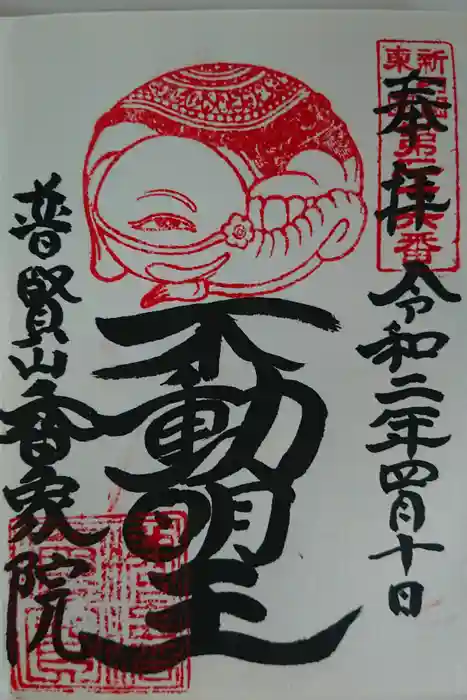 奉拝
令和二年四月十日
不動明王
普賢山香象院